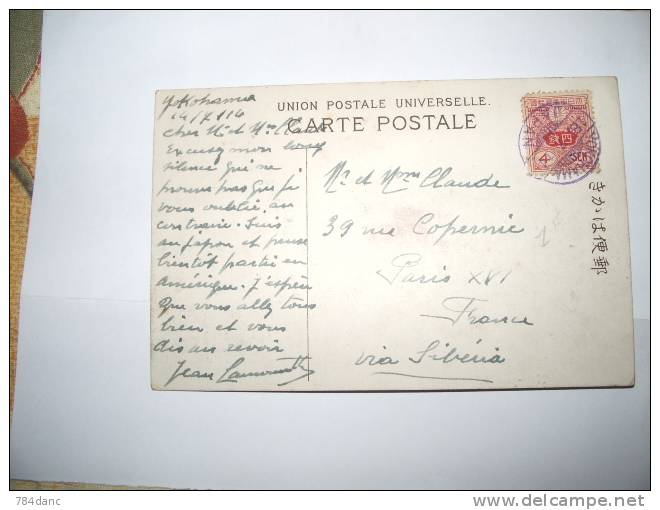 UNION POSTALE UNIVERSELLE.
CARTE POSTALE
Yokohama
14/7/14
Cher Mr et Mme Claude
Excusez mon long
silence qui ne
prouve pas que je
vous oublie, au
contraire. Suis
au Japon et pense
bientôt partir en
Amérique. J'espère
que vous allez tous
bien et vous
dis au revoir
Jean
Mr. et Mme Claude
39 rue Copernic
Paris XVI
France
via Sibéria
四銭
4
SEN
きかは便郵
784danc
delcampe.net